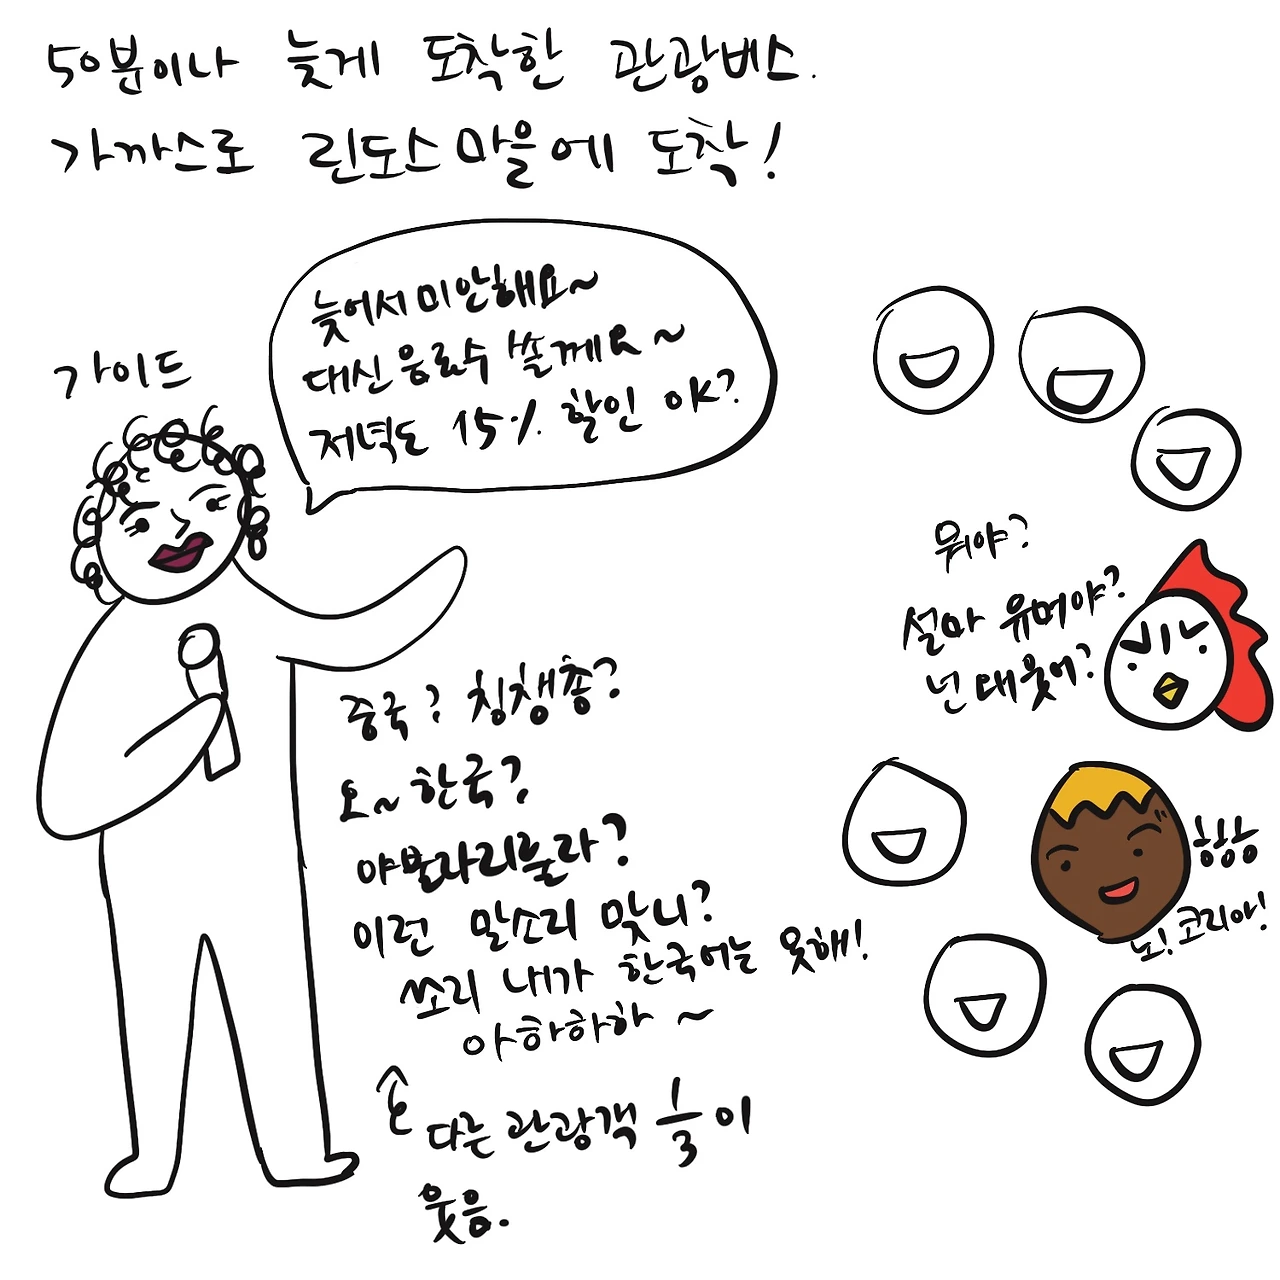 50분이나 늦게 도착한 관광버스.
가까스로 린도스마을에 도착!
늦어서 미안해요~
대신 음료수 쏠께요~
저녁도 15% 할인 OK?
가이드
뭐야?
설마 유머야?
넌 왜 웃어?
중국? 칭챙총?
오~ 한국?
야뵬라리훌라?
이런 말소리 맞니?
쏘리 내가 한국어는 못해!
아하하하~
다른 관광객 1/3이
웃음.
항항항
노! 코리아!